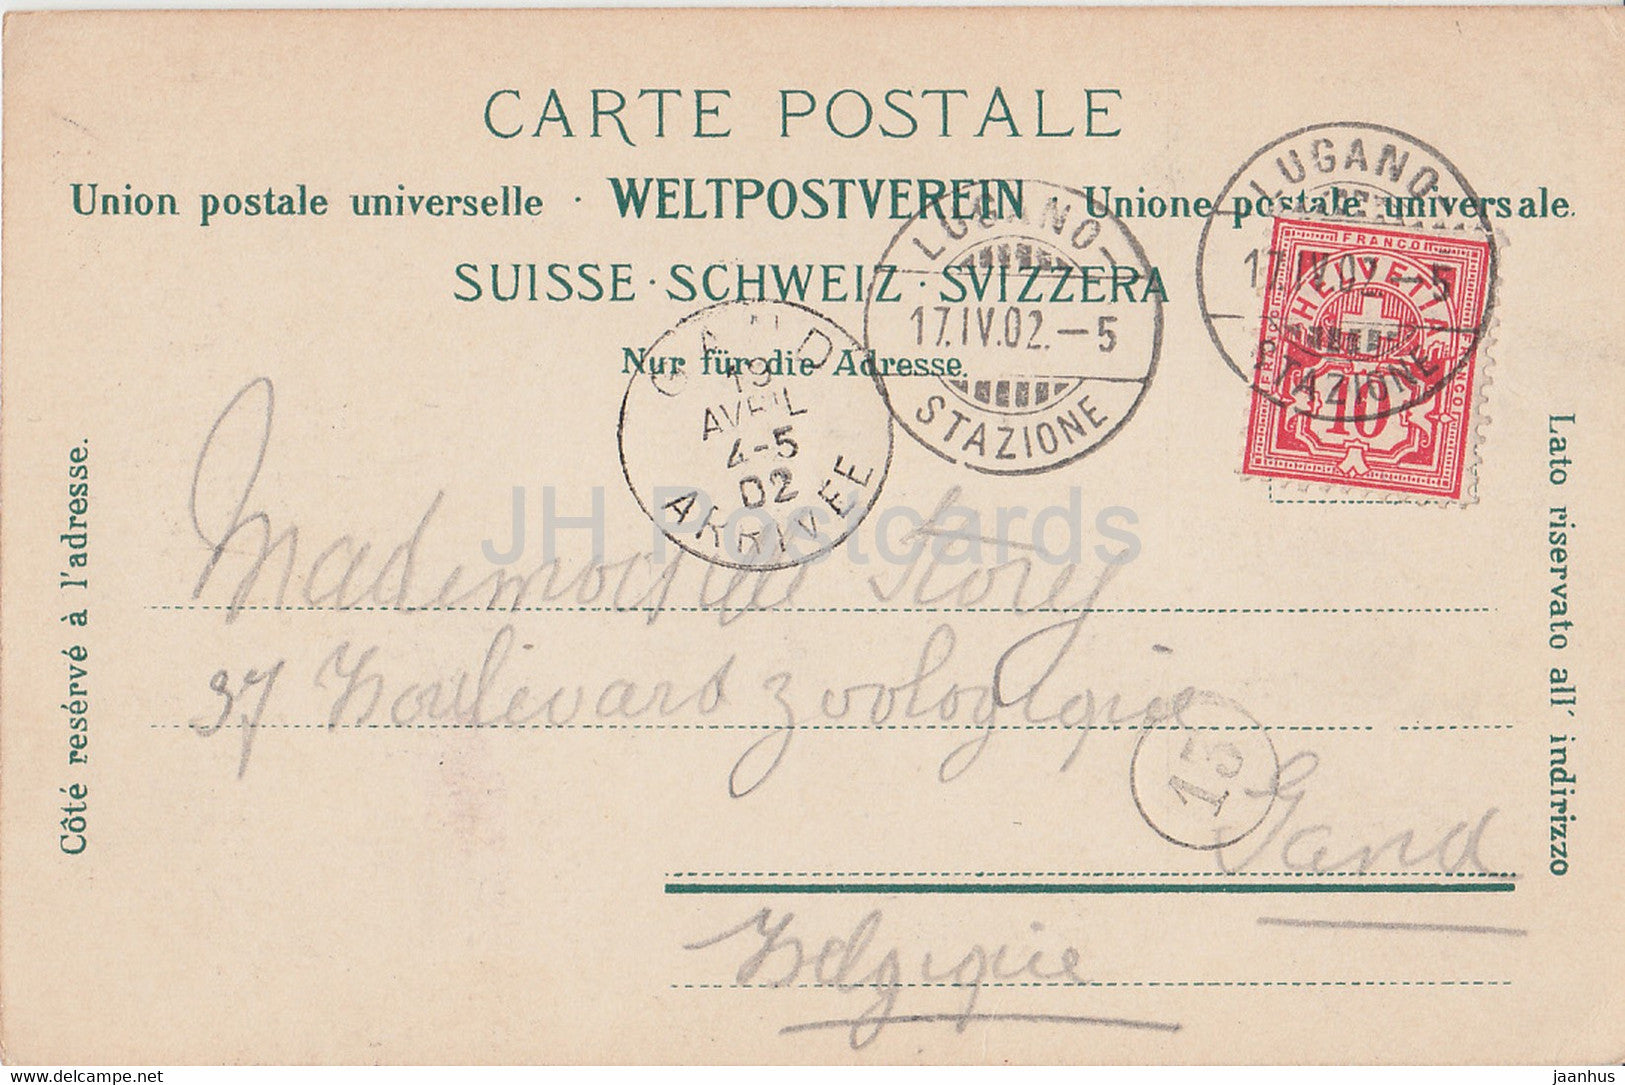 CARTE POSTALE
Union postale universelle · WELTPOSTVEREIN · Unione postale universale.
SUISSE · SCHWEIZ · SVIZZERA
Nur für die Adresse.
LUGANO
17.IV.02.-5
STAZIONE
LUGANO
17.IV.02.-5
STAZIONE
FRANCO
HELVETIA
FRANCO
FRANCO
10
GAND
19
AVRIL
4-5
02
ARRIVEE
Côté resérvé à l'adresse.
Lato riservato all' indirizzo
JH Postcards
Mademoiselle Story
37 Boulevard zoologique
15
Gand
Belgique
https://www.delcampe.net
jaanhus